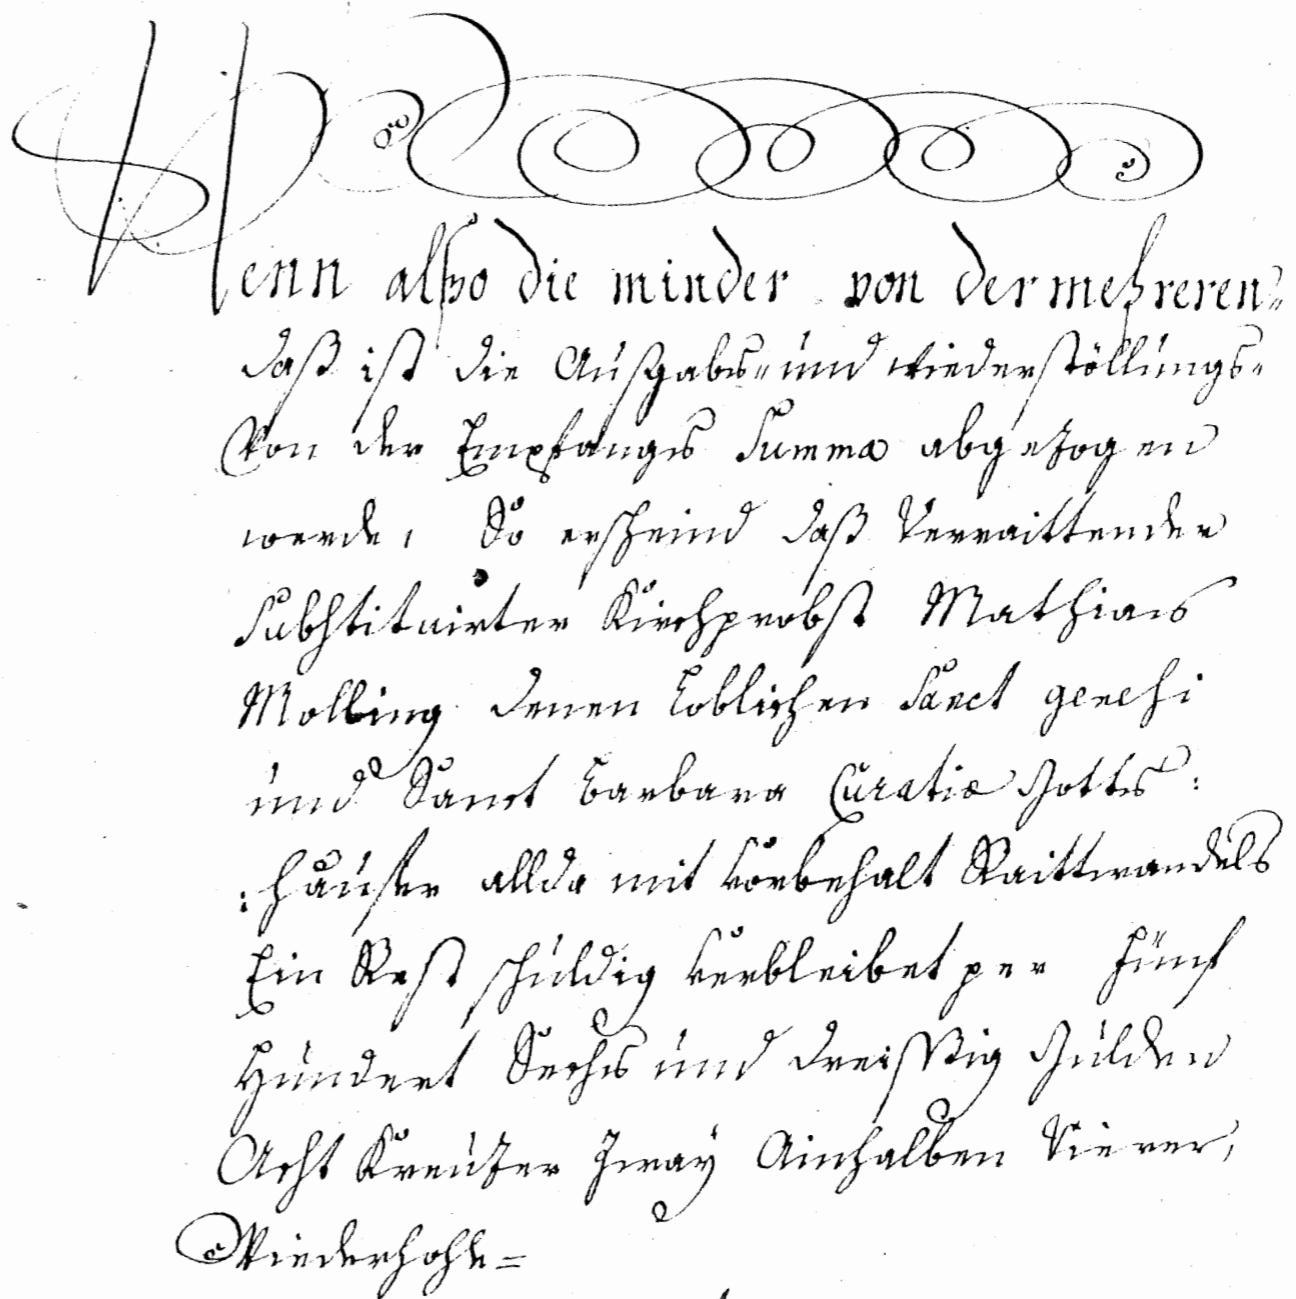 Wenn alßo die minder von der mehreren=
daß ist die Außgabs= und wiederstöllungs=
Von der Empfangs Summa abgezogen
werde, So erscheind daß Verraittender
Substituirter Kirchprobst Mathias
Molling denen Loblichen Sanct
und Sanct Barbara Curatiæ Gotts:
:häuser allda mit Vorbehalt Raittwandels
Ein Rest schuldig verbleibet per Fünf
Hundert Sechs und dreissig Gulden
Acht Kreuzer Zway Ainhalben Vierer,
Wiederhohle=